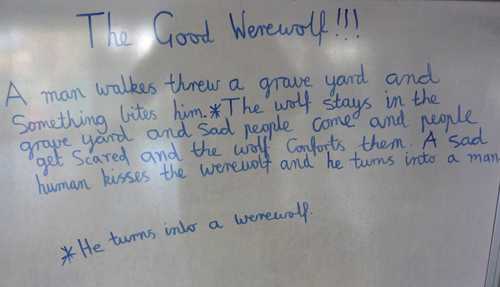 The Good Werewolf!!!
A man walkes threw a grave yard and
Something bites him.*The wolf stays in the
grave yard and sad people come and people
get Scared and the wolf Conforts them. A sad
human kisses the werewolf and he turns into a man
*He turns into a werewolf.